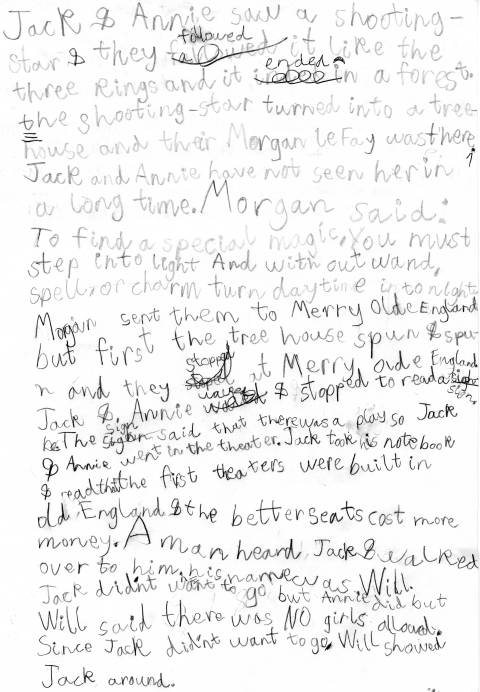 Jack & Annie saw a shooting-
star & they followed it like the
three kings and it ended in a forest.
the shooting-star turned into a tree-
house and their Morgan le Fay was there
Jack and Annie have not seen her in
a long time. Morgan said:
To find a special magic, You must
step into light And with out wand,
spell, or charm turn daytime into night
Mogan sent them to Merry Olde England
but first the tree house spun & spu-
n and they stopped at Merry oude England
Jack & Annie & stopped to read a sign
The sign said that there was a play so Jack
& Annie went in the theater. Jack took his notebook
& read that the first theaters were built in
old England & the better seats cost more
money. A man heard Jack & walked
over to him. his name was Will.
Jack didn't want to go but Annie did but
Will said there was NO girls allowed.
Since Jack didn't want to go, Will showed
Jack around.